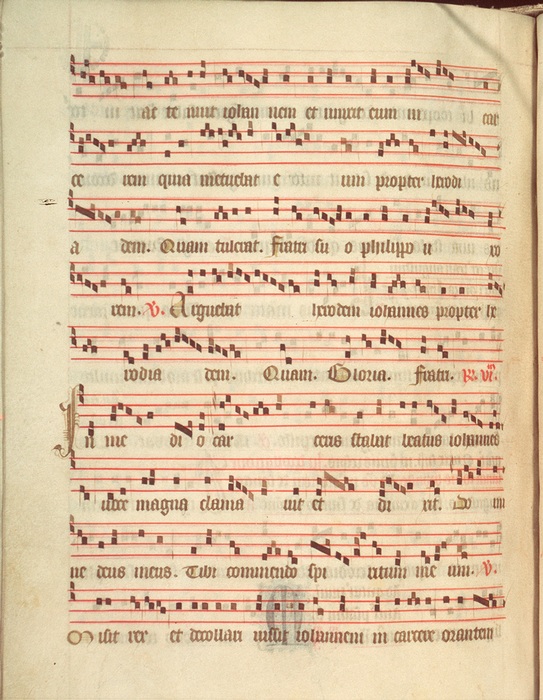 at te nuit iohan nem et iunxit eum in car
ce rem quia metuebat e um propter herodi
a dem. Quam tulerat. Fratri su o philippo u xo
rem. V. Arguebat herodem iohannes propter he
rodia dem. Quam. Gloria. Fratri. R. vi
In me di o car ceris stabat beatus iohannes
uoce magna clama uit et di xit. Do mi
ne deus meus. Tibi commendo spi ritum me um. V.
Misit rex et decollari iussit iohannem in carcere orantem